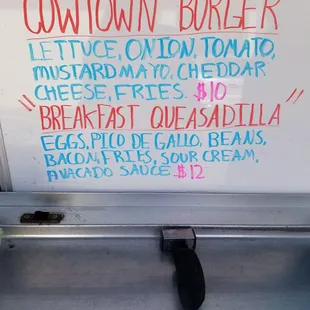 COWTOWN BURGER
LETTUCE, ONION, TOMATO,
MUSTARD MAYO, CHEDDAR
CHEESE, FRIES. $10
"BREAKFAST QUEASADILLA"
EGGS, PICO DE GALLO, BEANS,
BACON, FRIES, SOUR CREAM,
AVACADO SAUCE. $12